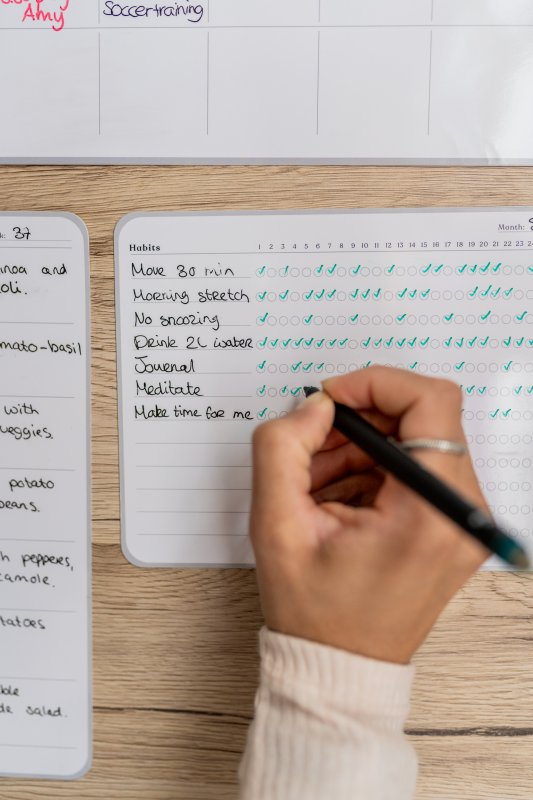 Amy
Soccertraining
37
and
mato-basil
with
veggies.
potato
beans.
peppers,
tatoes
salad.
Month:
Habits 1 2 3 4 5 6 7 8 9 10 11 12 13 14 15 16 17 18 19 20 21 22 23
Move 30 min
Morning stretch
No snoozing
Drink 2L water
Journal
Meditate
Make time for me